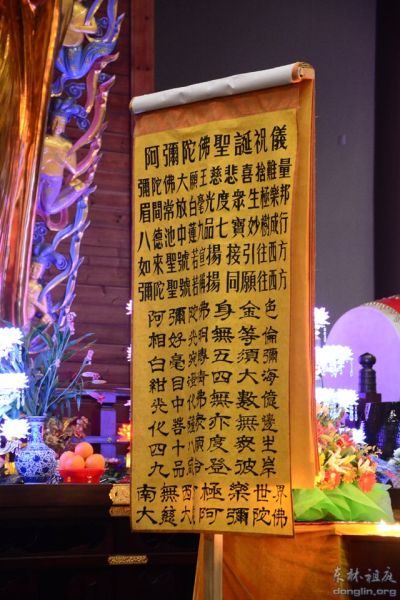 阿彌陀佛聖誕祝儀
彌陀佛大願王慈悲喜捨難量
眉間常放白毫光度衆生極樂邦
八德池中蓮九品七寶妙樹成行
如來聖號若宣揚接引往西方
彌陀聖號若稱揚同願往西方
阿彌陀佛身金色
相好光明無等倫
白毫宛轉五須彌
紺目澄清四大海
光中化佛無數億
化菩薩衆亦無邊
四十八願度衆生
九品咸令登彼岸
南無西方極樂世界
大慈大悲阿彌陀佛
东林祖庭
donglin.org